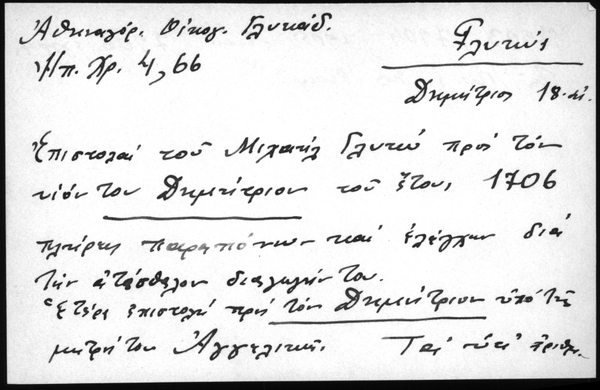 Ἀθηναγόρ. Οἰκογ. Γλυκάδ.
Ἠπ. Χρ. 4, 66
Γλυκύς
Δημήτριος 18. αἰ.
Ἐπιστολαί τοῦ Μιχαήλ Γλυκύ πρός τόν
υἱόν του Δημήτριον τοῦ ἔτους 1706
πλήρης παραπόνων καί ἐλέγχων διά
τήν ἀτάσθαλον διαγωγήν του.
Ἑτέρα ἐπιστολή πρός τόν Δημήτριον ὑπό τῆς
μητρός του Ἀγγελικῆς. Ταῖ ἀριθμ.